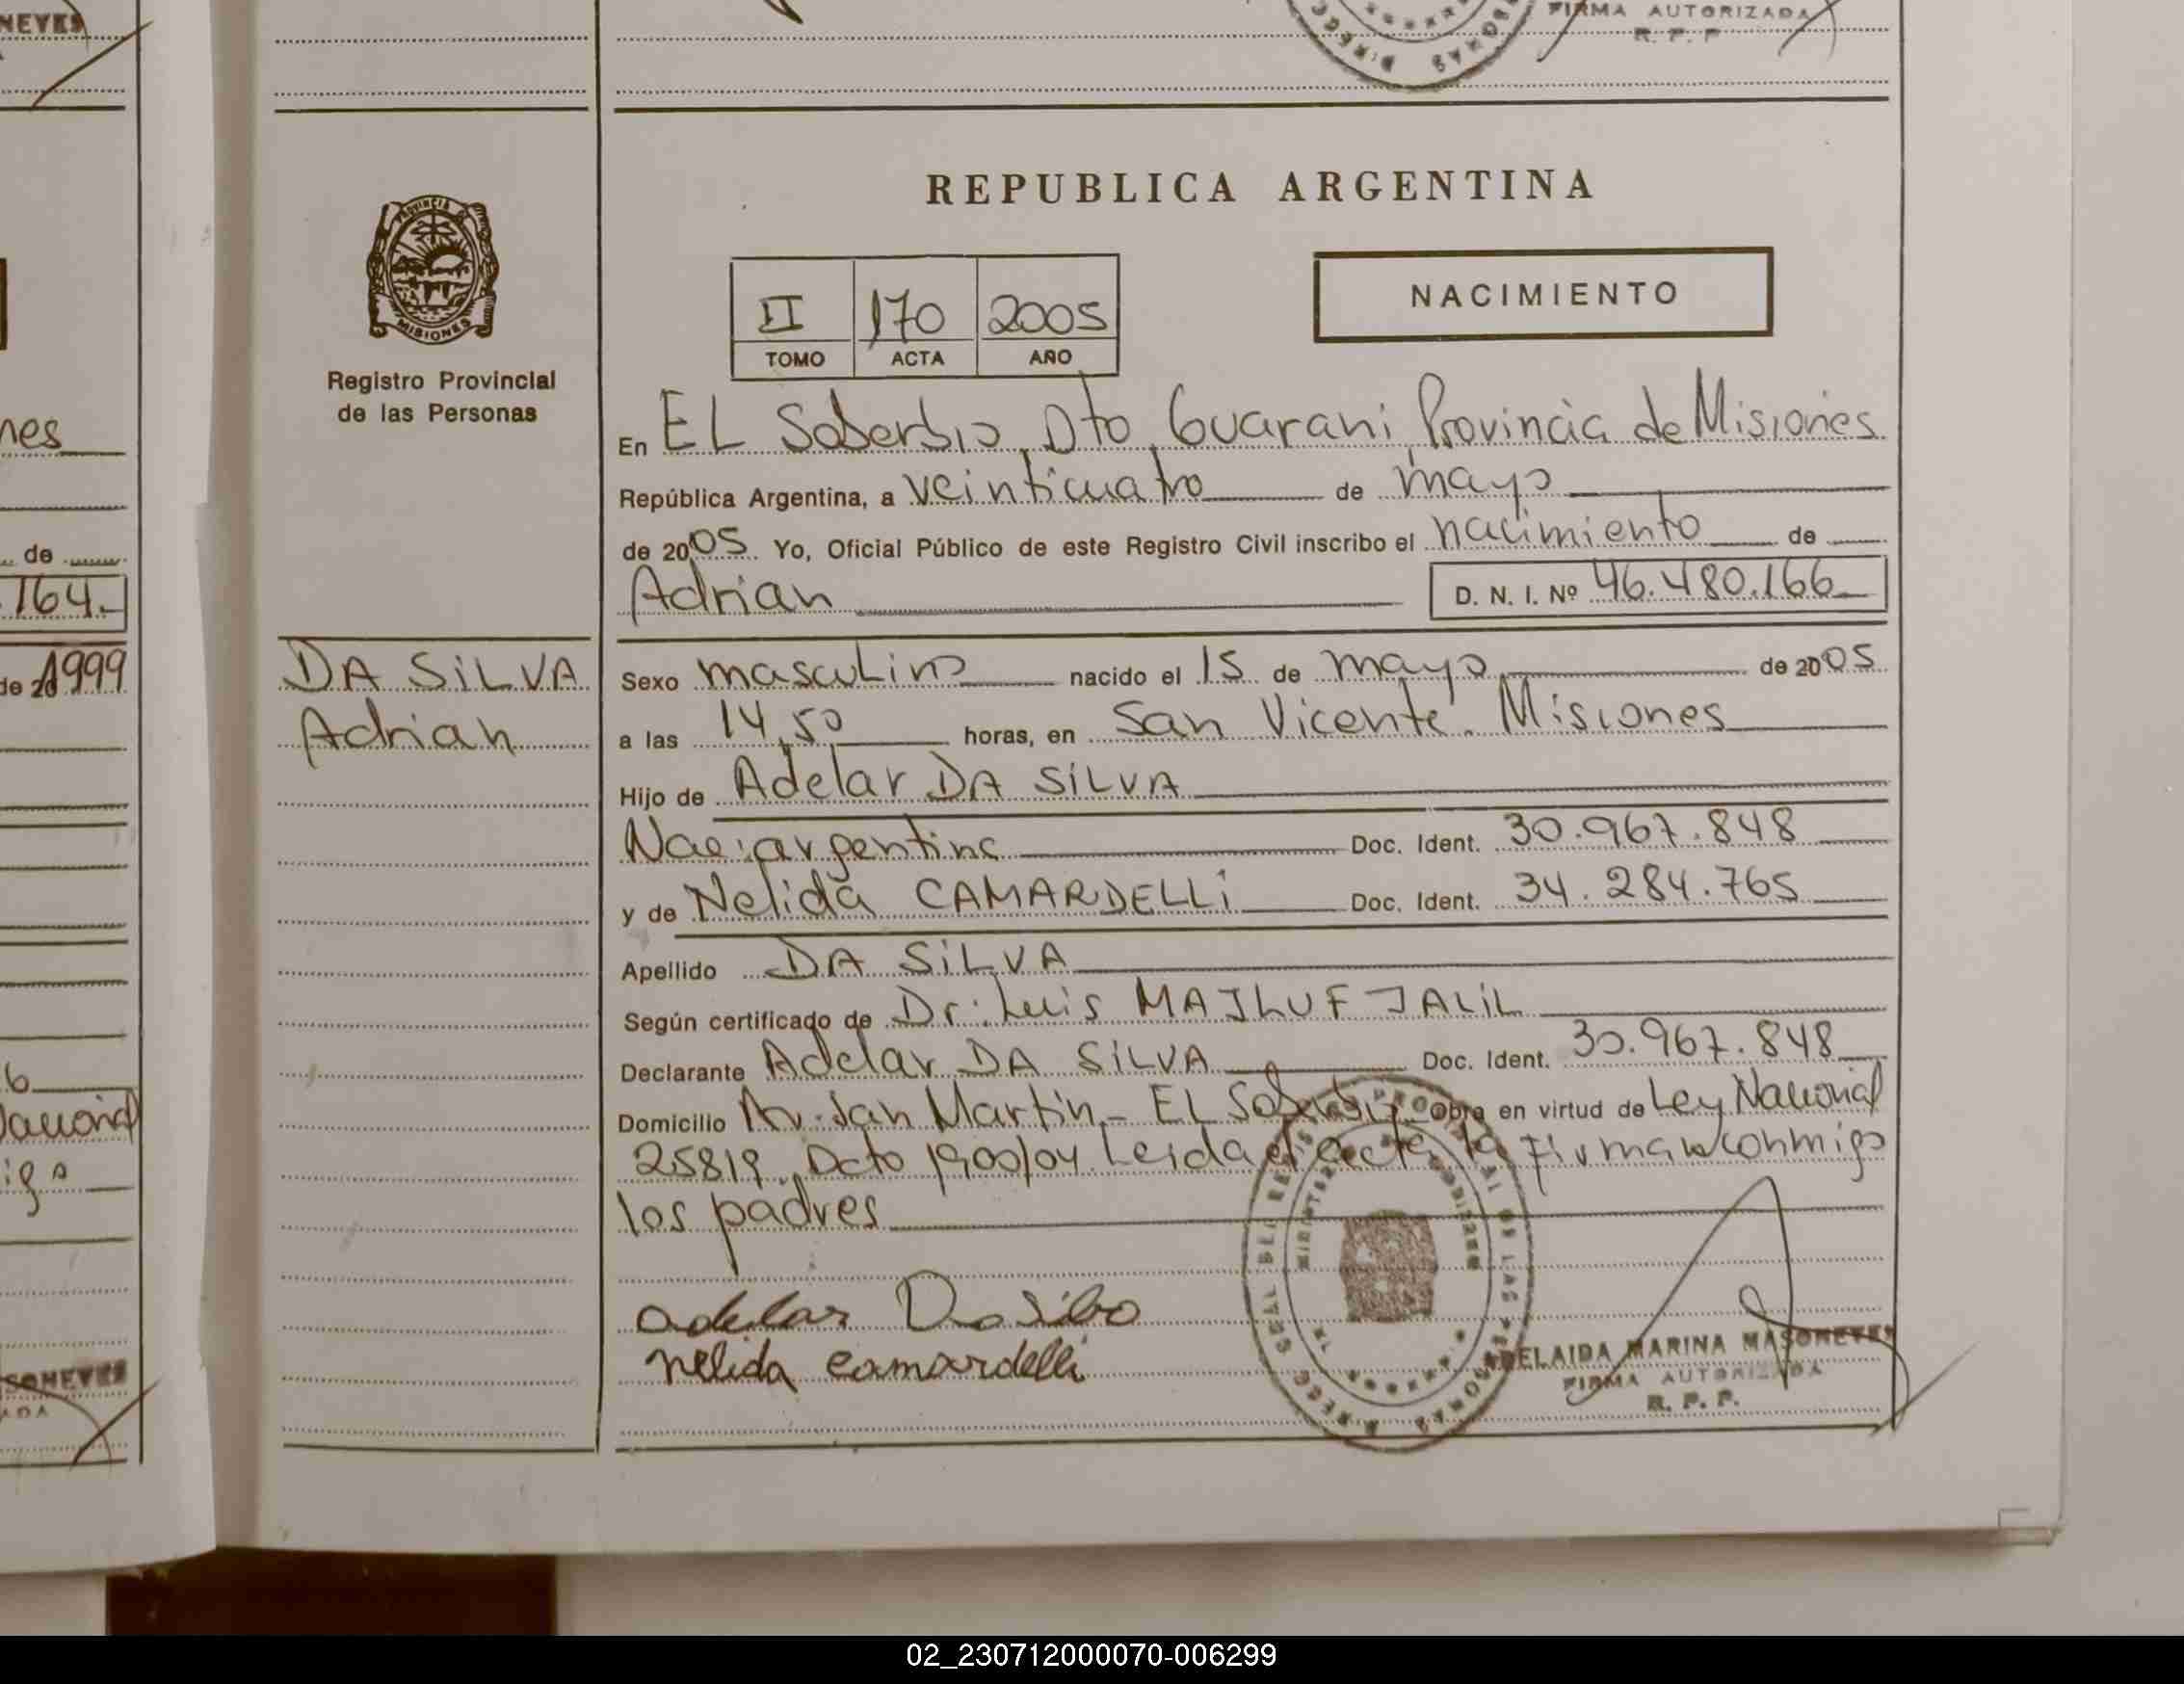 NEYES
FIRMA AUTORIZADA
R. P. P
PROVINCIA DE
MISIONES
Registro Provincial
de las Personas
REPUBLICA ARGENTINA
II 170 2005
TOMO ACTA AÑO
NACIMIENTO
nes
En EL Soberbio, Dto Guarani, Provincia de Misiones
República Argentina, a veinticuatro de mayo
de
de 2005 Yo, Oficial Público de este Registro Civil inscribo el nacimiento de
164.-
Adrian D. N. I. Nº 46.480.166
de 201999
DA SiLVA
Adrian
Sexo masculino nacido el 15 de mayo de 2005
a las 14,50 horas, en San Vicente. Misiones
Hijo de Adelar DA SiLVA
Nac: argentina Doc. Ident. 30.967.848
y de Nelida CAMARDELLi Doc. Ident. 34.284.765
Apellido DA SiLVA
Según certificado de Dr: Luis MAJLUF JALiL
Declarante Adelar DA SiLVA Doc. Ident. 30.967.848
6
Domicilio Av. San Martin - EL Soberbio Obra en virtud de Ley Nacional
Nacional
25819, Dcto 1900/04. Leida el acta la firman conmigo
igo
los padres
adelar Da Silva
nelida camardelli
ADELAIDA MARINA MASONEYES
FIRMA AUTORIZADA
R. P. P.
SONEYES
ADA
02_230712000070-006299